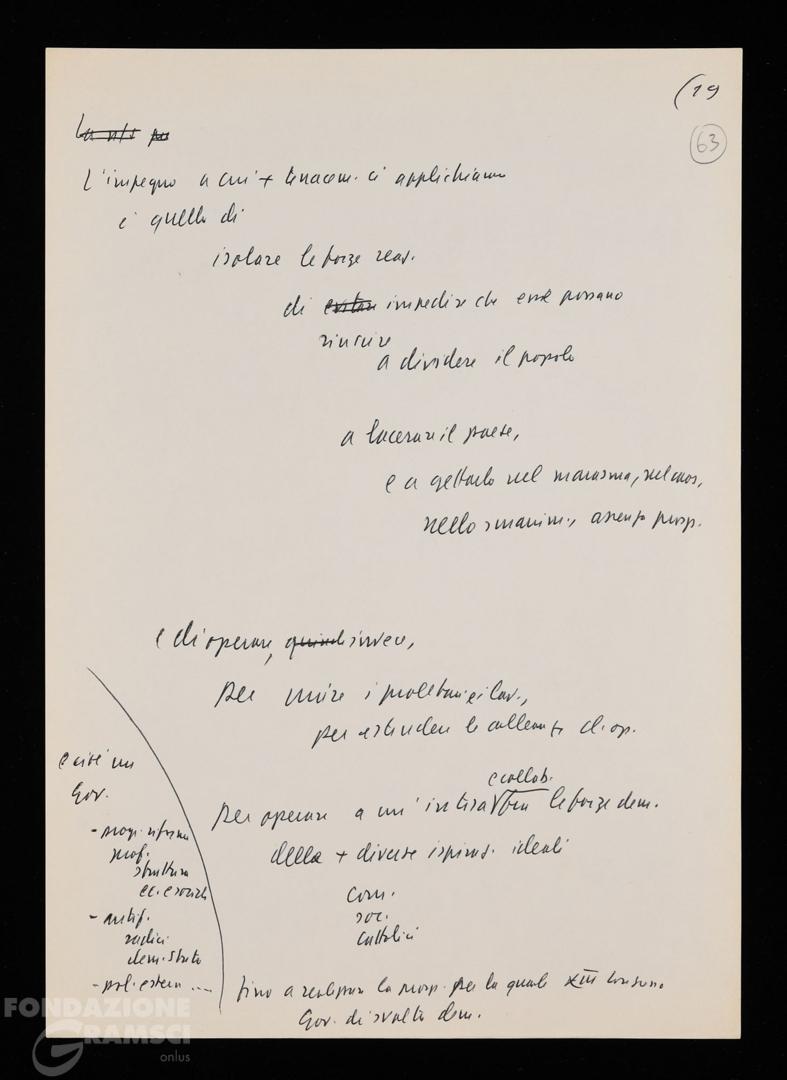 (19
63
L'impegno a cui + tenacem. ci applichiamo
è quello di
isolare le forze reaz.
di evitare impedire che esse possano
riuscire
a dividere il popolo
a lacerare il paese,
e a gettarlo nel marasma, nel caos,
nello smarrim., assenza prosp.
e di operare, quindi invece,
per unire i proletari e i lav.,
per estendere le alleanze cl. op.
e collab.
per operare a un'intesa tra le forze dem.
delle + diverse ispiraz. ideali
com.
soc.
cattolici
fino a realizzare la prosp. per la quale XIII Congresso
Gov. di svolta dem.
e cioè un
Gov.
- progr. riforma
prof.
struttura
ec. e sociali
- antif.
radici
dem. Stato
- pol. estera ....
FONDAZIONE
GRAMSCI
onlus